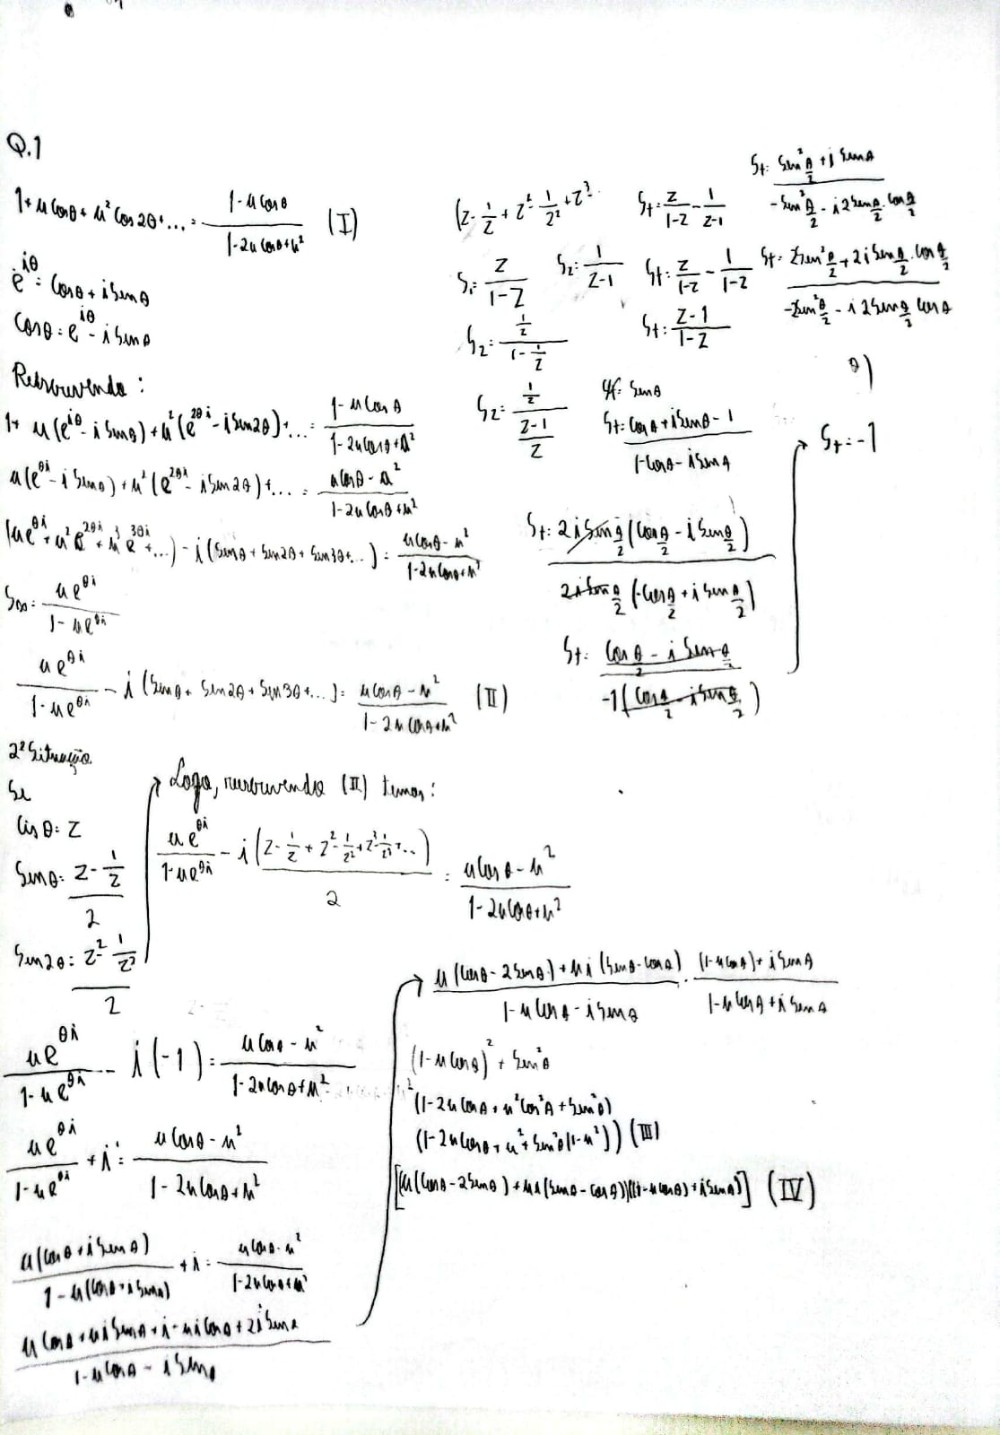 Q.1
1+ u Cosθ + u² Cos 2θ + ... = (1 - u Cos θ)/(1 - 2u Cosθ + u²) (I)
e^{iθ} = Cosθ + i Senθ
Cosθ = e^{iθ} - i Senθ
Reescrevendo:
1+ u(e^{iθ} - i Senθ) + u²(e^{2θi} - i Sen2θ) + ... = (1 - u Cos θ)/(1 - 2u Cosθ + u²)
u(e^{θi} - i Senθ) + u²(e^{2θi} - i Sen2θ) + ... = (u Cosθ - u²)/(1 - 2u Cosθ + u²)
(ue^{θi} + u²e^{2θi} + u³e^{3θi} + ...) - i(Senθ + Sen2θ + Sen3θ + ...) = (u Cosθ - u²)/(1 - 2u Cosθ + u²)
S∞ = ue^{θi}/(1 - ue^{θi})
ue^{θi}/(1 - ue^{θi}) - i(Senθ + Sen2θ + Sen3θ + ...) = (u Cosθ - u²)/(1 - 2u Cosθ + u²) (II)
2ª Situação
Se
Cis θ = Z
Senθ = (Z - 1/Z)/2
Sen2θ = (Z² - 1/Z²)/2
Logo, reescrevendo (II) temos:
ue^{θi}/(1 - ue^{θi}) - i(Z - 1/Z + Z² - 1/Z² + Z³ - 1/Z³ + ...)/2 = (u Cos θ - u²)/(1 - 2u Cosθ + u²)
ue^{θi}/(1 - ue^{θi}) - i(-1) = (u Cosθ - u²)/(1 - 2u Cosθ + u²)
ue^{θi}/(1 - ue^{θi}) + i = (u Cosθ - u²)/(1 - 2u Cosθ + u²)
u(Cosθ + i Senθ)/(1 - u(Cosθ + i Senθ)) + i = (u Cosθ - u²)/(1 - 2u Cosθ + u²)
(u Cosθ + ui Senθ + i - ui Cosθ + 2i Senθ)/(1 - u Cosθ - i Senθ)
(Z - 1/Z + Z² - 1/Z² + Z³ -
S₁ = Z/(1 - Z)
S₂ = 1/(Z - 1)
S₂ = (1/Z)/(1 - 1/Z)
S₂ = (1/Z)/((Z - 1)/Z)
St = Z/(1 - Z) - 1/(Z - 1)
St = Z/(1 - Z) - 1/(1 - Z)
St = (Z - 1)/(1 - Z)
Senθ
St = (Cosθ + i Senθ - 1)/(1 - Cosθ - i Senθ)
St = 2i Sen θ/2 (Cos θ/2 - i Sen θ/2)/(2i Sen θ/2 (-Cos θ/2 + i Sen θ/2))
St = (Cos θ/2 - i Sen θ/2)/(-1(Cos θ/2 - i Sen θ/2))
St = (Sen² θ/2 + i Sen θ)/(-Sen² θ/2 - i 2Sen θ/2 . Cos θ/2)
St = (2Sen² θ/2 + 2i Sen θ/2 . Cos θ/2)/(-2Sen² θ/2 - i 2Sen θ/2 Cos θ)
θ)
St = -1
(u(Cosθ - 2Senθ) + ui(Senθ - Cosθ))/(1 - u Cosθ - i Senθ) . ((1 - u Cosθ) + i Senθ)/(1 - u Cosθ + i Senθ)
(1 - u Cosθ)² + Sen²θ
(1 - 2u Cosθ + u² Cos²θ + Sen²θ)
(1 - 2u Cosθ + u² + Sen²θ(1 - u²)) (III)
[(u(Cosθ - 2Senθ) + ui(Senθ - Cosθ))((1 - u Cosθ) + i Senθ)] (IV)